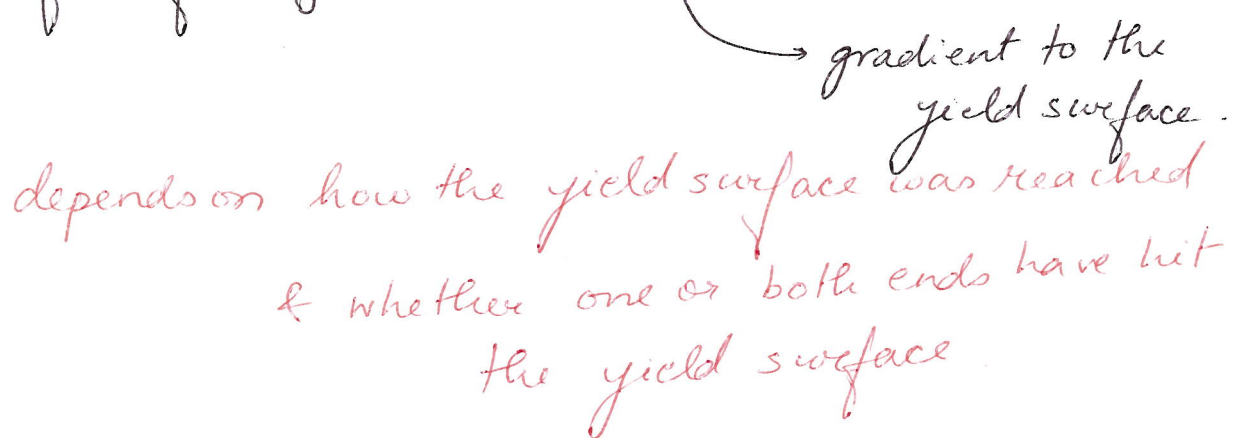 gradient to the
yield surface.
depends on how the yield surface was reached
& whether one or both ends have hit
the yield surface